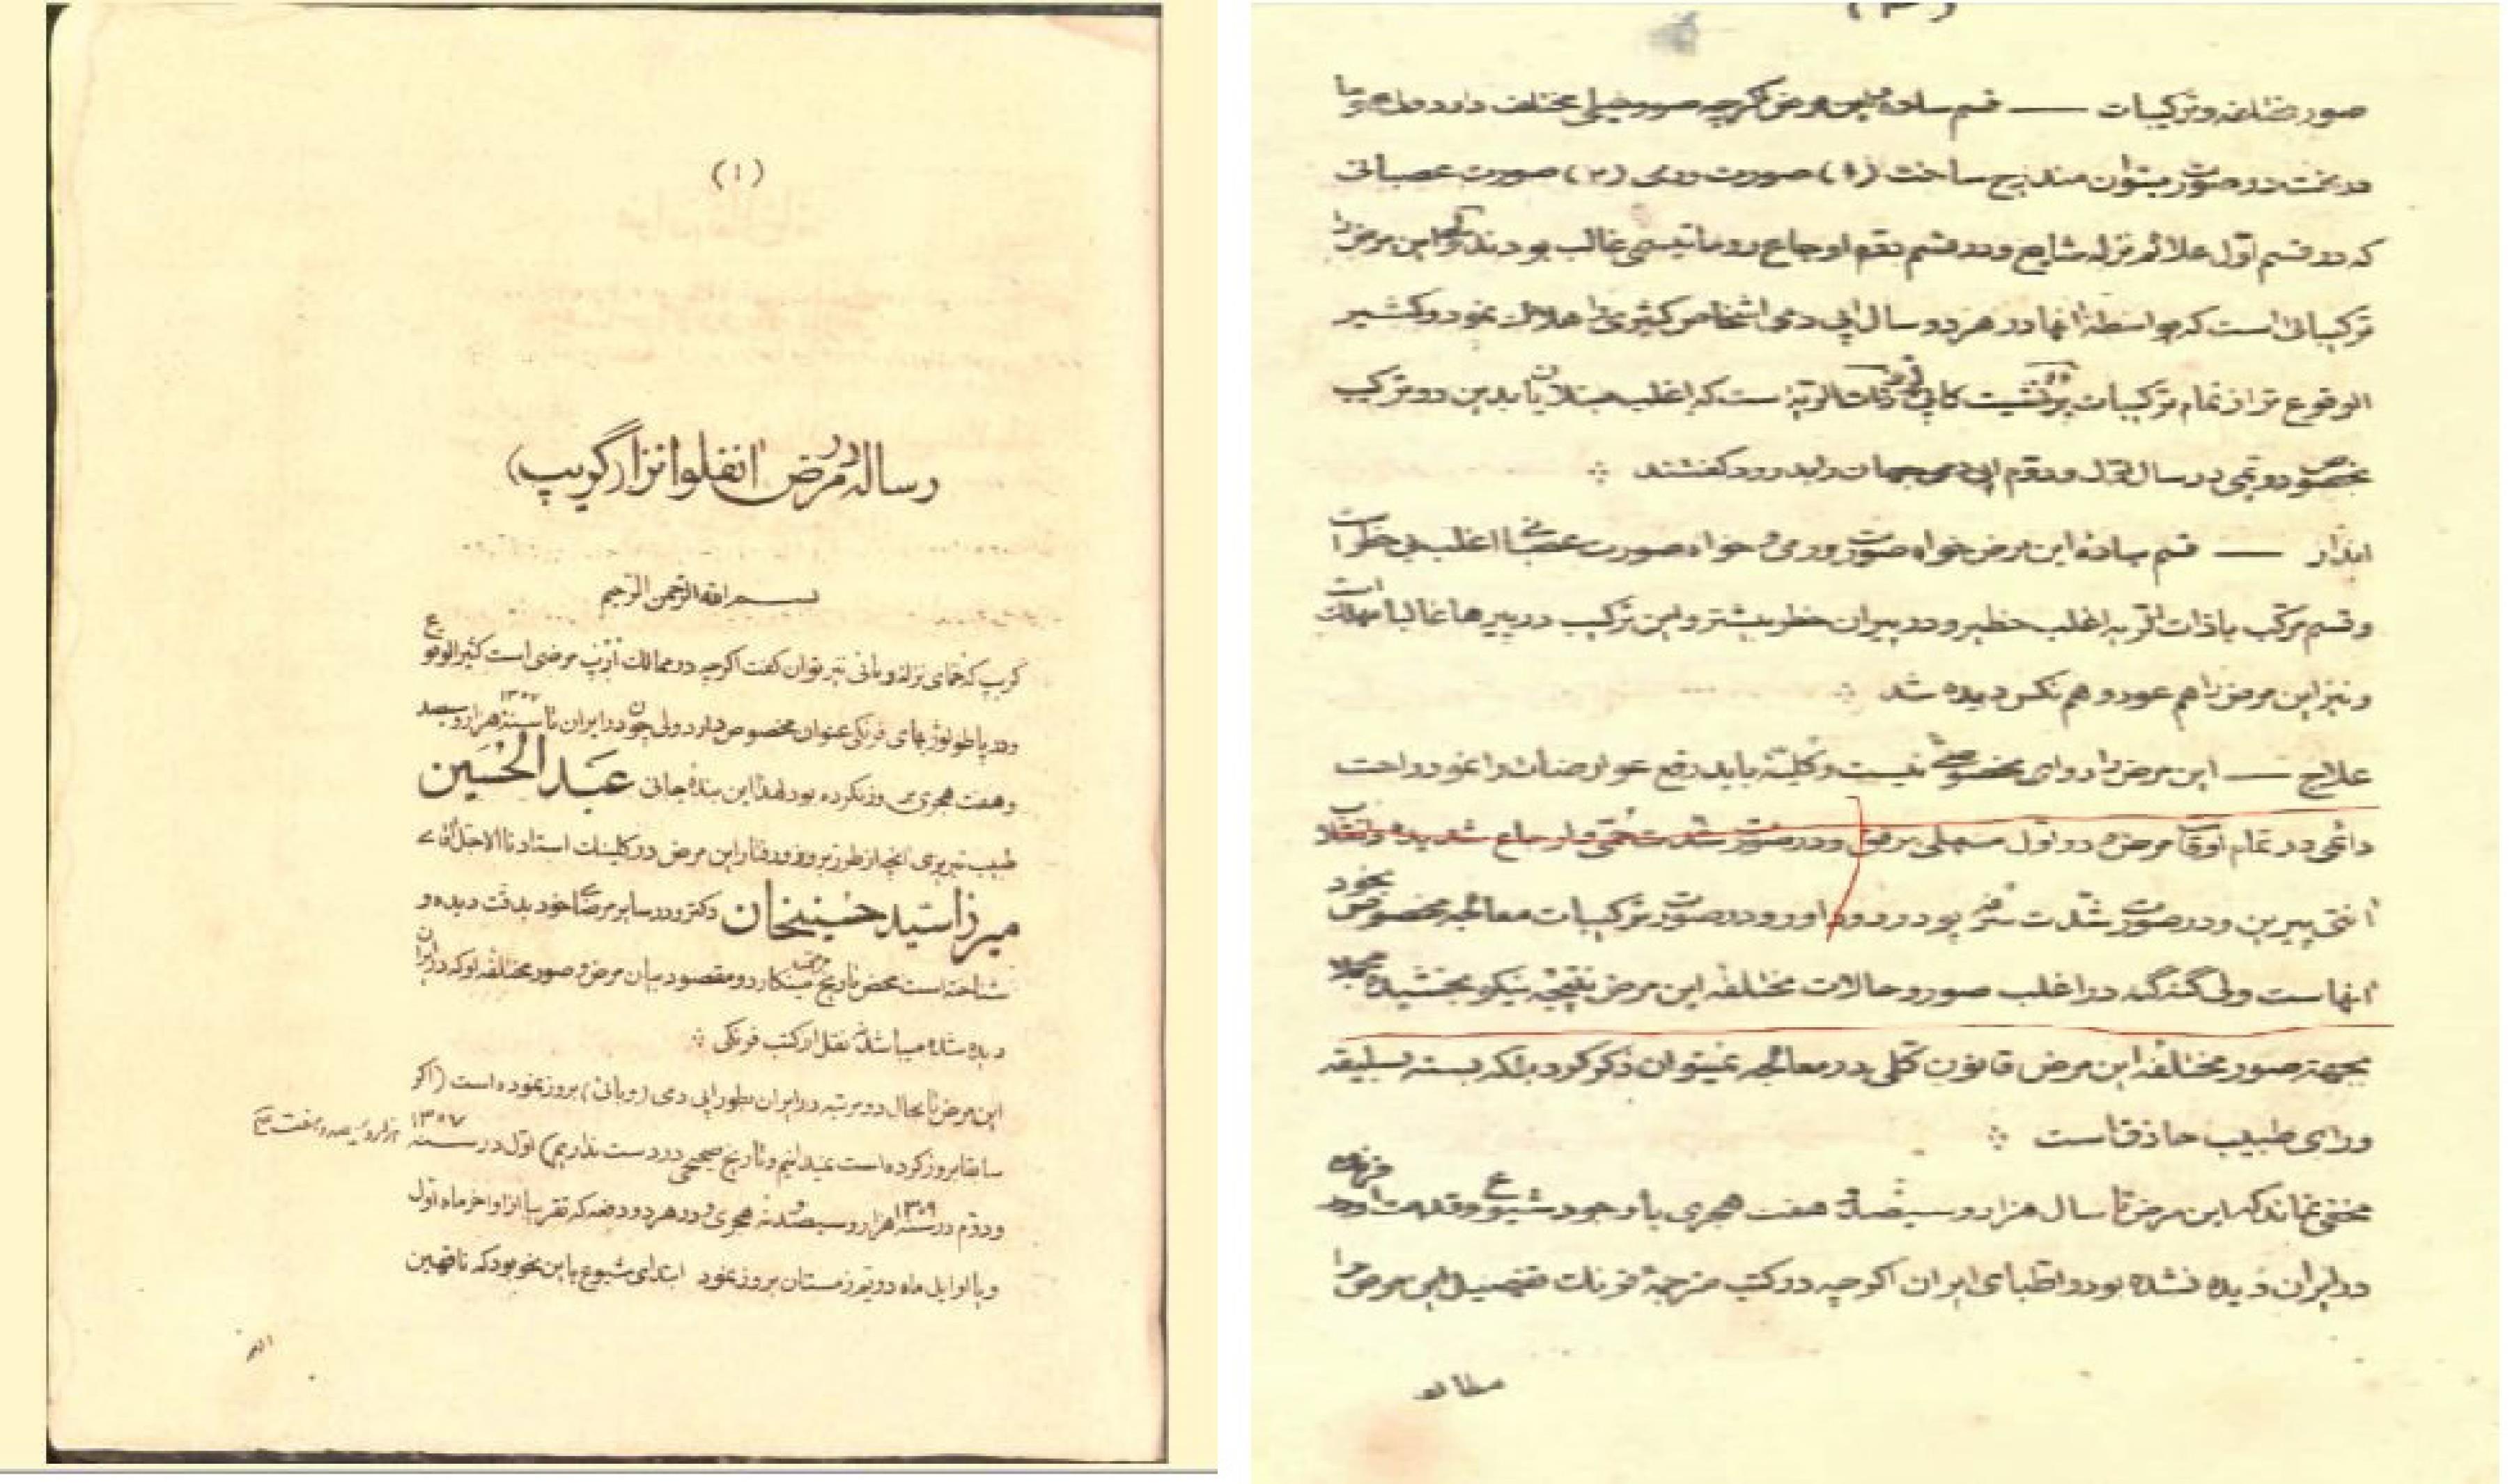 (۱)
رساله در مرض انفلوانزا (گریپ)
بسم الله الرحمن الرحیم
گریپ که حمای نزله وبائی نیز توان گفت اگرچه در ممالک ارپ مرضی است کثیرالوقوع
ودر پاطولوژیهای فرنگی عنوان مخصوص دارد ولی چون در ایران تا سنه ۱۳۰۷ هزار وسیصد
وهفت هجری بروز نکرده بود لهذا این بنده جانی عبدالحسین
طبیب تبریزی آنچه از طرز بروز ورفتار این مرض در کلینیک استادنا الاجل آقای
میرزا سید حسینخان دکتر ودر سایر مرضاء خود بدقت دیده و
شناخته است محض تاریخ مینگارد ومقصود بیان مرض وصور مختلفه او که در ایران
دیده شده میباشد نه نقل از کتب فرنگی
این مرض تا بحال دو مرتبه در ایران بطور اپی دمی (وبائی) بروز نموده است (اگر
سابقا بروز کرده است نمیدانیم وتاریخ صحیحی در دست نداریم) اول در سنه ۱۳۰۷ هزار وسیصد وهفت
ودوم در سنه ۱۳۰۹ هزار وسیصد ونه هجری ودر هر دو دفعه که تقریبا از اواخر ماه اول
ویا اوایل ماه دویم زمستان بروز نمود ابتدای شیوع باین نحو بود که ناقهین
صور مختلفه وترکیبات — قسم ساده این مرض اگرچه صور خیلی مختلف دارد ولی
در تحت دو صورت بتوان مندرج ساخت (۱) صورت ورمی (۲) صورت عصبانی
که در قسم اول علائم نزله شایع ودر قسم دوم اوجاع روماتیسمی غالب بودند این مرض را
ترکیباتی است که بواسطه آنها در هر دو سال اپی دمی اشخاص کثیری را هلاک نمود وکثیر
الوقوع تر از تمام ترکیبات برنشیت کاپی وذات الریه است که اغلب مبتلایان بدین دو ترکیب
بخصوص در سال اول ودوم اپی دمی جهان را بدرود گفتند
انذار — قسم ساده این مرض خواه صورت ورمی وخواه صورت عصبانی اغلب بی خطر است
وقسم مرکب با ذات الریه اغلب خطیر ودر پیران خطر بیشتر واین ترکیب در پیرها غالبا مهلک است
ونیز این مرض را هم عود وهم نکس دیده شد
علاج — این مرض را دوای مخصوصی نیست وکلیة باید رفع عوارضات را نمود راحت
دائمی در تمام اوقات مرض ودر اول مسهلی برفق ودر صورت شدت حمی واوجاع شدیده
آنتی پیرین ودر صورت شدت سرفه پودر دوور ودر صورت ترکیبات معالجه مخصوص بخود
آنها است ولی گنه گنه در اغلب صور وحالات مختلفه این مرض نتیجه نیکو بخشیده
بجهة صور مختلفه این مرض قانون کلی در معالجه نمیتوان ذکر کرد بلکه بسته بسلیقه
ورای طبیب حاذق است
مخفی نماند که این مرض تا سال هزار وسیصد وهفت هجری با وجود شیوع وقدمت او در فرنگ
در ایران دیده نشده بود واطبای ایران اگرچه در کتب مترجمه فرنگ تفصیل این مرض را